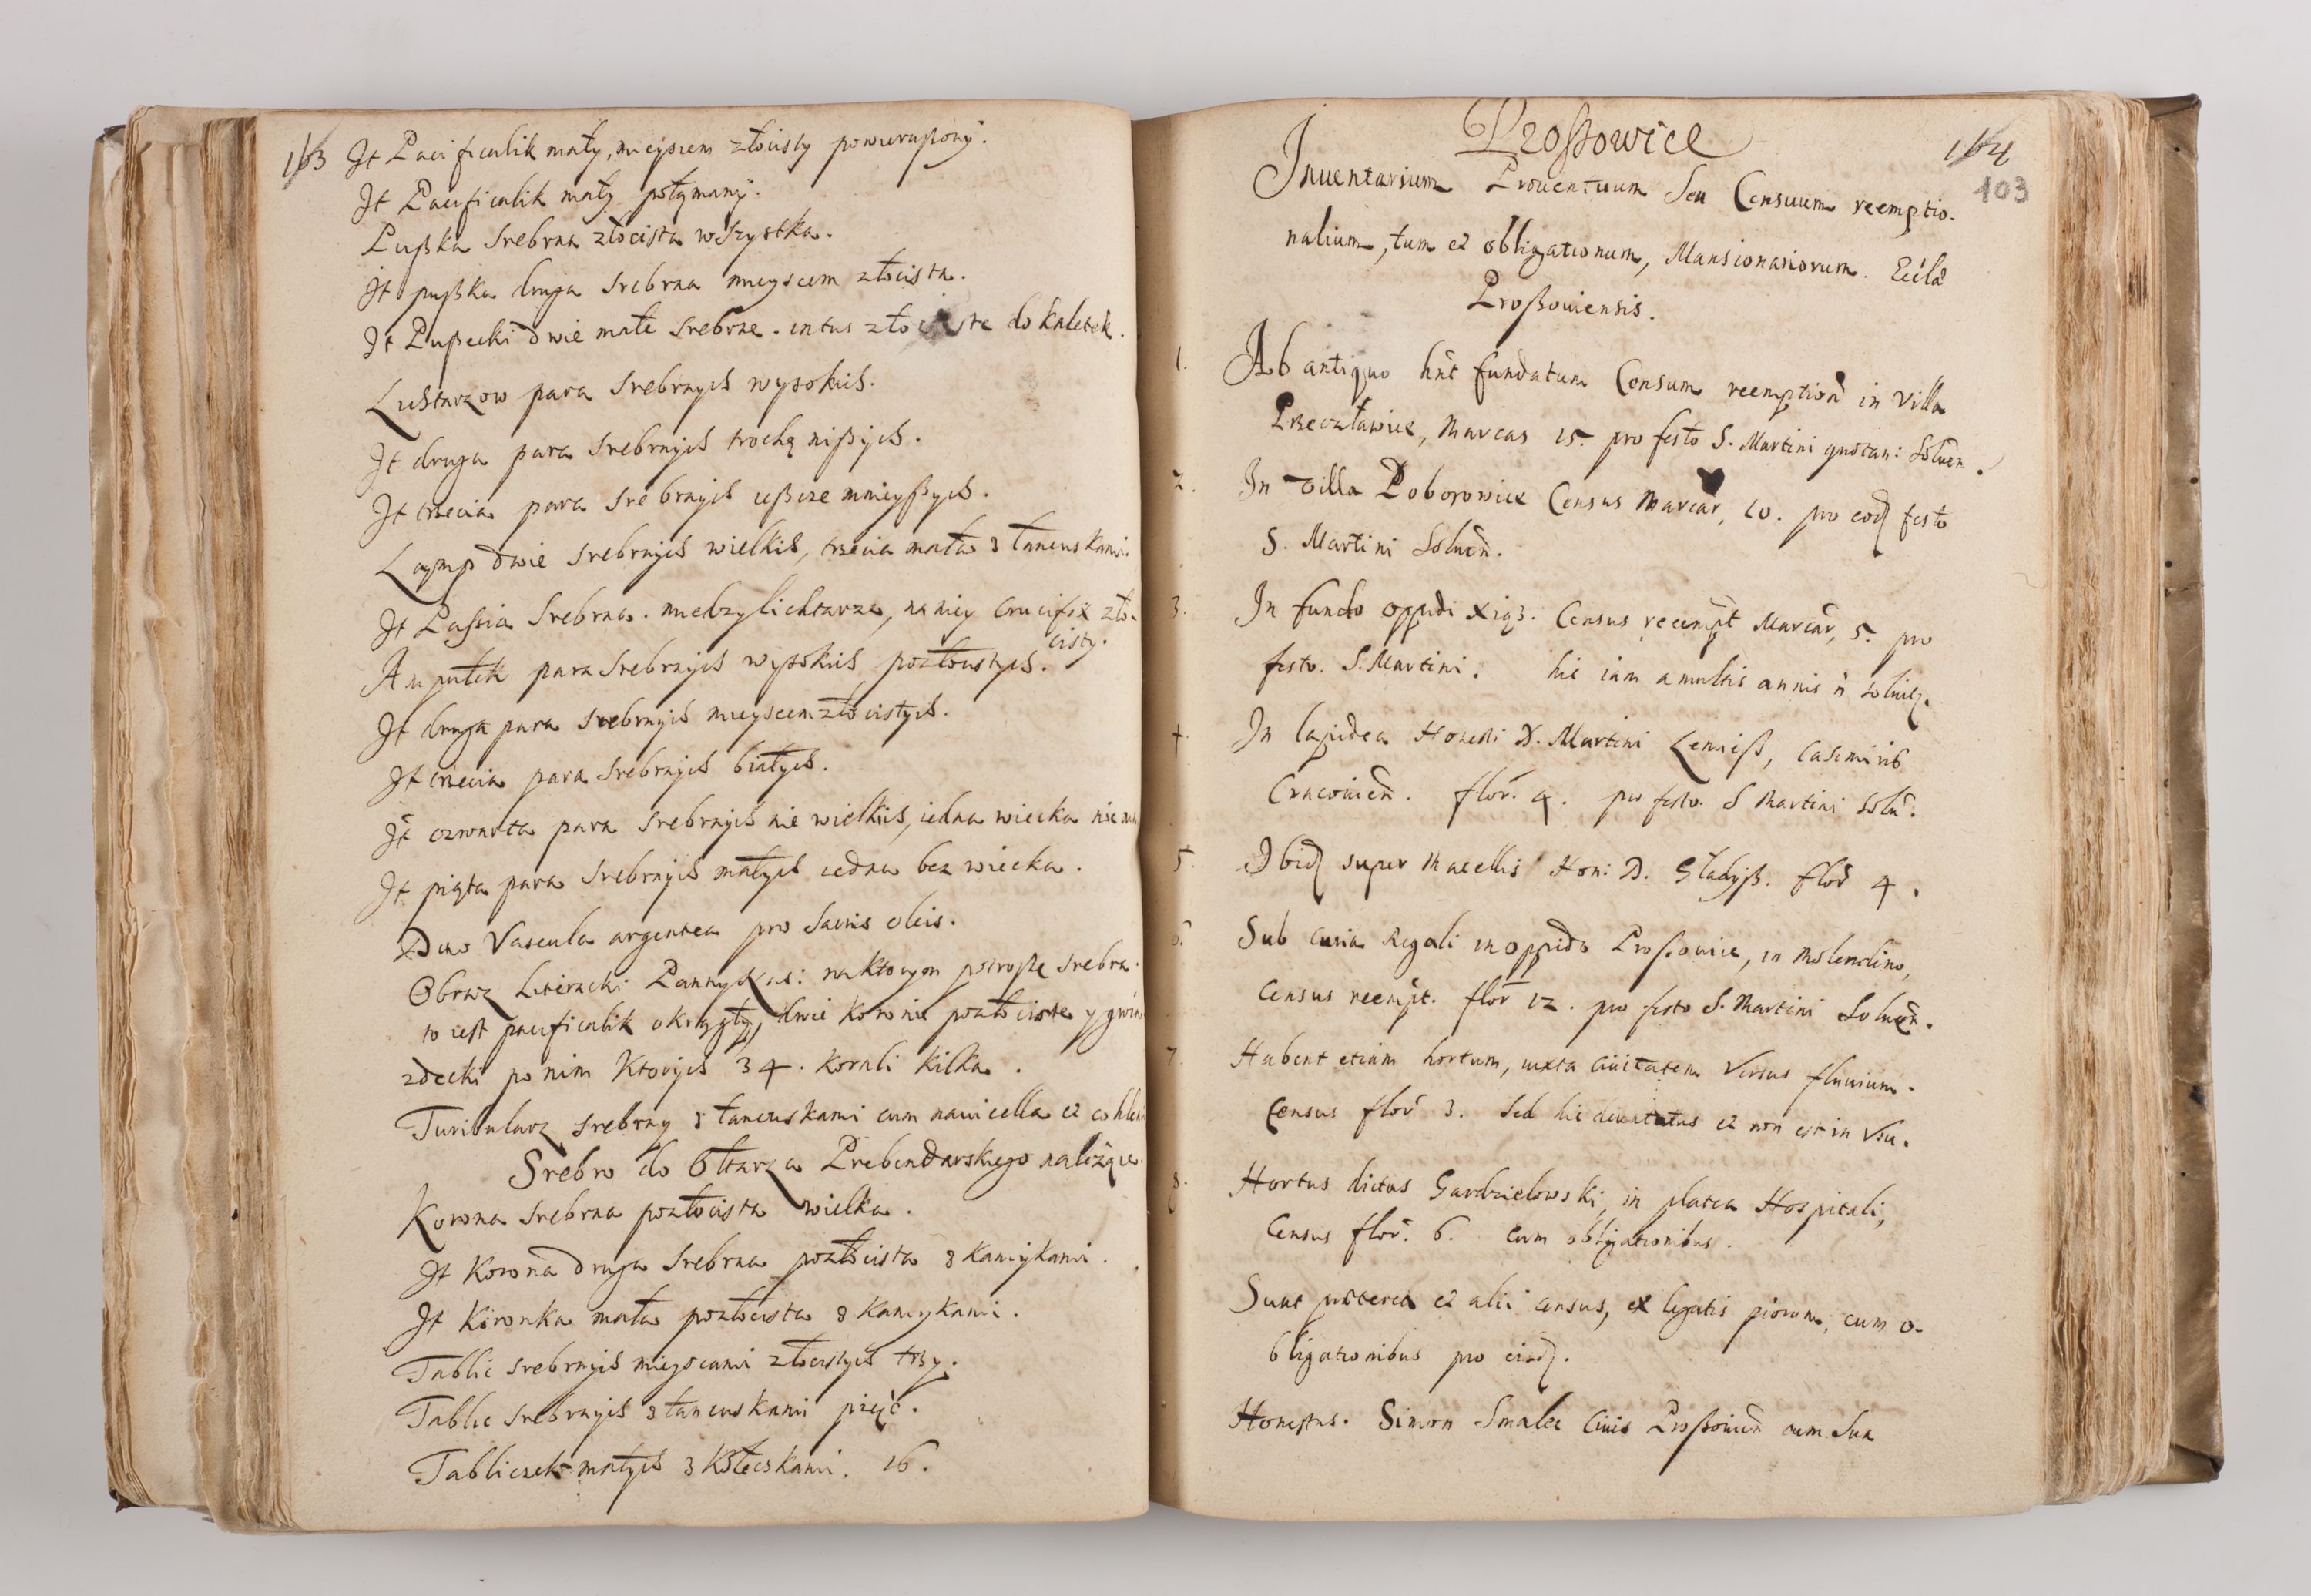 163
Jt Pacificalik mały, mieyscem złocisty powieraszony.
Jt Pacificalik mały połąmany.
Pußka srebrna złocista wszystka.
Jt pußka druga srebrna mieyscem złocista.
Jt Pußecki dwie małe srebrne. intus złociste do kaletek.
Lichtarzow para srebrnych wysokich.
Jt druga para srebrnych trochę nißych.
Jt trzecia para srebrnych ießcze mnieyßych.
Lamp dwie srebrnych wielkich, trzecia mała z łancuskami.
Jt Passia srebrna. miedzy lichtarze, na niey Crucifix zło-
cisty.
Ampułek para srebrnych wysokich pozłocistych.
Jt druga para srebrnych mieyscem złocistych.
Jt trzecia para srebrnych białych.
Jt czwarta para srebrnych nie wielkich, iedna wiecka nie ma
Jt piąta para srebrnych małych iedna bez wiecka.
Duo Vascula argentea pro sacris oleis.
Obraz Literacki Panny Mas: na ktorym potroße srebra.
to iest pacificalik okrągły, dwie koronie pozłociste y gwia
zdecki po nim ktorych 34. korali kilka.
Turibularz srebrny z łancuskami cum nauicella et cohlea
Srebro do Ołtarza Prebendarskiego należące.
Korona srebrna pozłocista wielka.
Jt Korona druga srebrna pozłocista z kamykami.
Jt Koronka mała pozłocista z kamykami.
Tablic srebrnych mieyscami złocistych trzy.
Tablic srebrnych z łancuskami pięć.
Tabliczek małych z kołeckami. 16.
Proßowice
164
103
Inuentarium Prouentuum seu Censuum reemptio-
nalium, tum et obligationum, Mansionariorum. Eccla
Proßouiensis.
1. Ab antiquo hnt fundatum Censum reemption in Villa
Przeczławice, Marcas 15. pro festo S. Martini quotan: soluen.
2. In villa Poborowice Census Marcar, 10. pro eod festo
S. Martini soluen.
3. In fundo oppidi Xiąz. Census reempt Marcar, 5. pro
festo. S. Martini. hic iam a multis annis n soluit.
4 In lapidea Honesti D. Martini Lemieß, Casimirię
Cracouien. flor. 4. pro festo. S Martini solu.
5 Ibid super Macellis Hon: D. Gładyß. flor 4.
6. Sub curia Regali in oppido Proßouice, in Molendino,
Census reempt. flor 12. pro festo S. Martini soluen.
7. Habent etiam hortum, iuxta Ciuitatem Versus fluuium.
Census flor 3. Sed hic deuastatus et non est in Vsu.
8. Hortus dictus Gardzielowski, in platea Hospitali,
Census flor. 6. Cum obligationibus.
Sunt præterea et alii census, ex legatis piorum, cum o-
bligationibus pro eisd.
Honestus. Simon Smalec Ciuis Proßouien cum sua